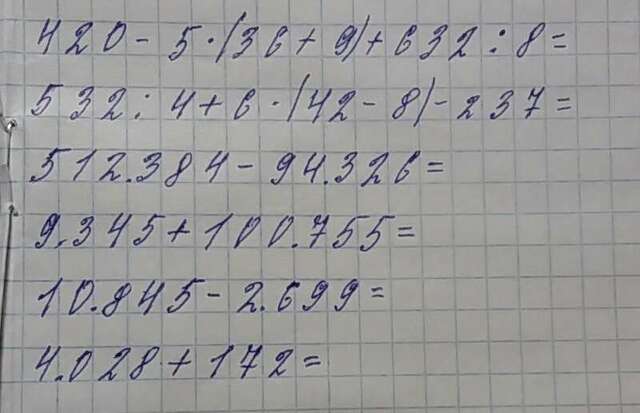 420 - 5 · (36 + 9) + 632 : 8 =
532 : 4 + 6 · (42 - 8) - 237 =
512.384 - 94.326 =
9.345 + 100.755 =
10.845 - 2.699 =
4.028 + 172 =